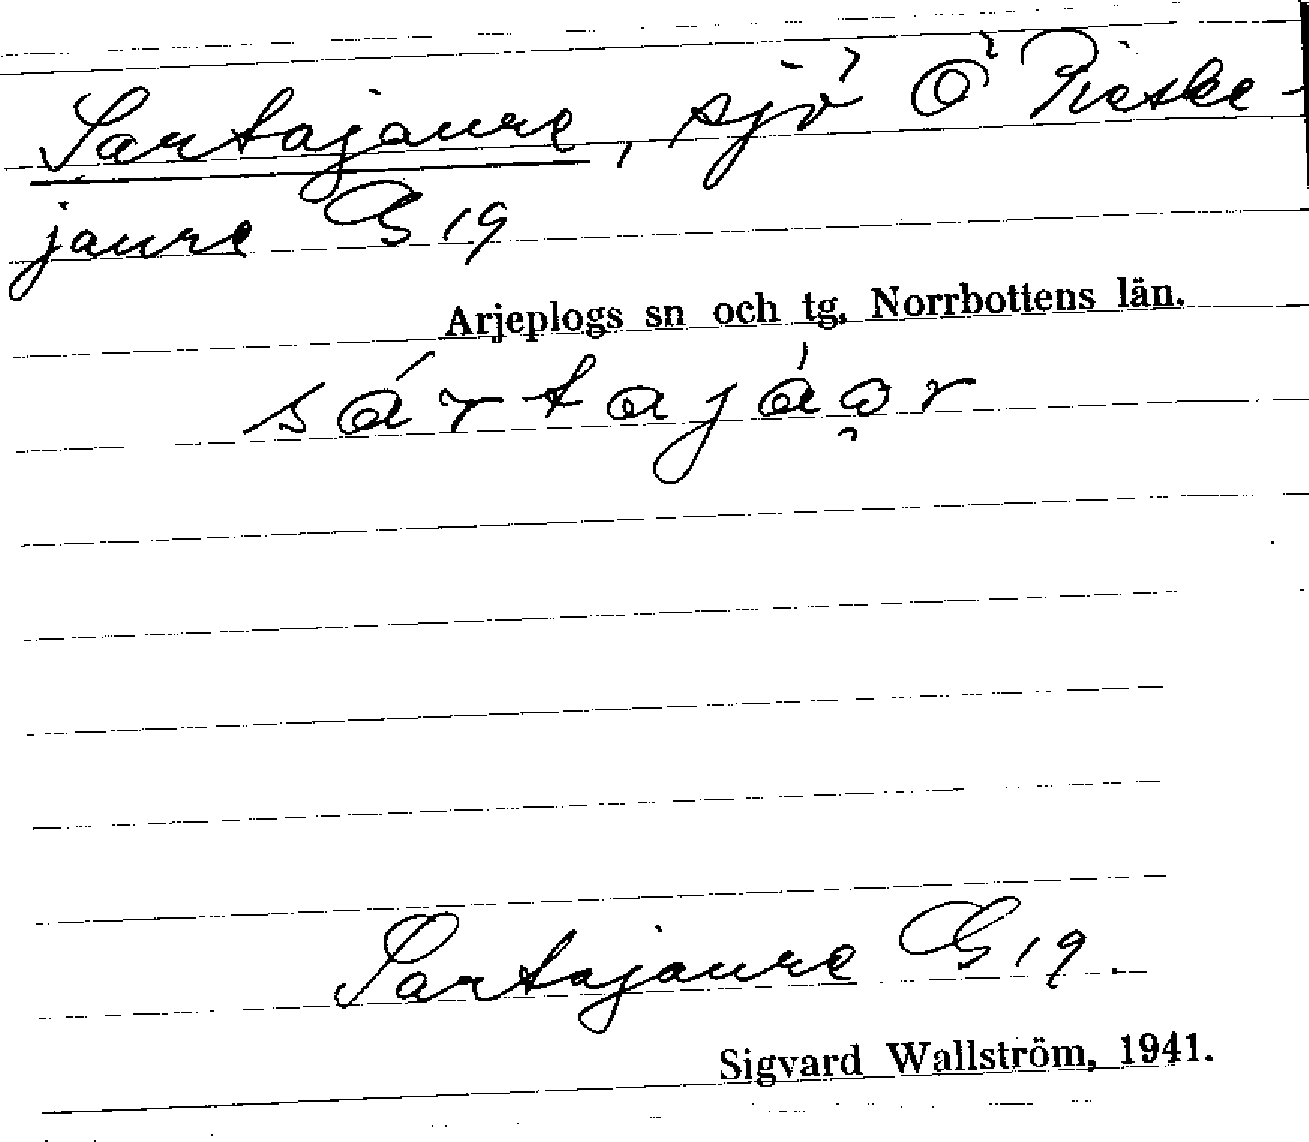 Sartajaure, sjö Ö Pieske-
jaure G 19
Arjeplogs sn och tg, Norrbottens län.
sártajáo̭r
Sartajaure G 19.
Sigvard Wallström, 1941.